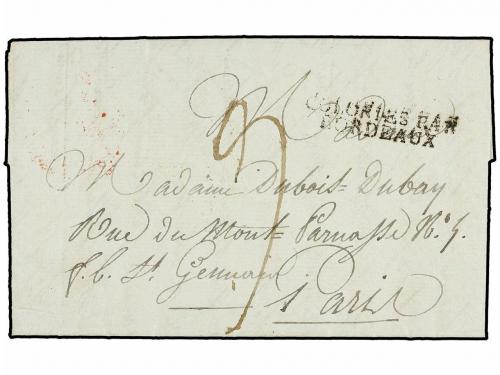 COLONIES PAR
BORDEAUX
M
Madame Dubois=Dubay
Rue du Mont=Parnasse N.° 5.
f. b. St. Germain
Paris